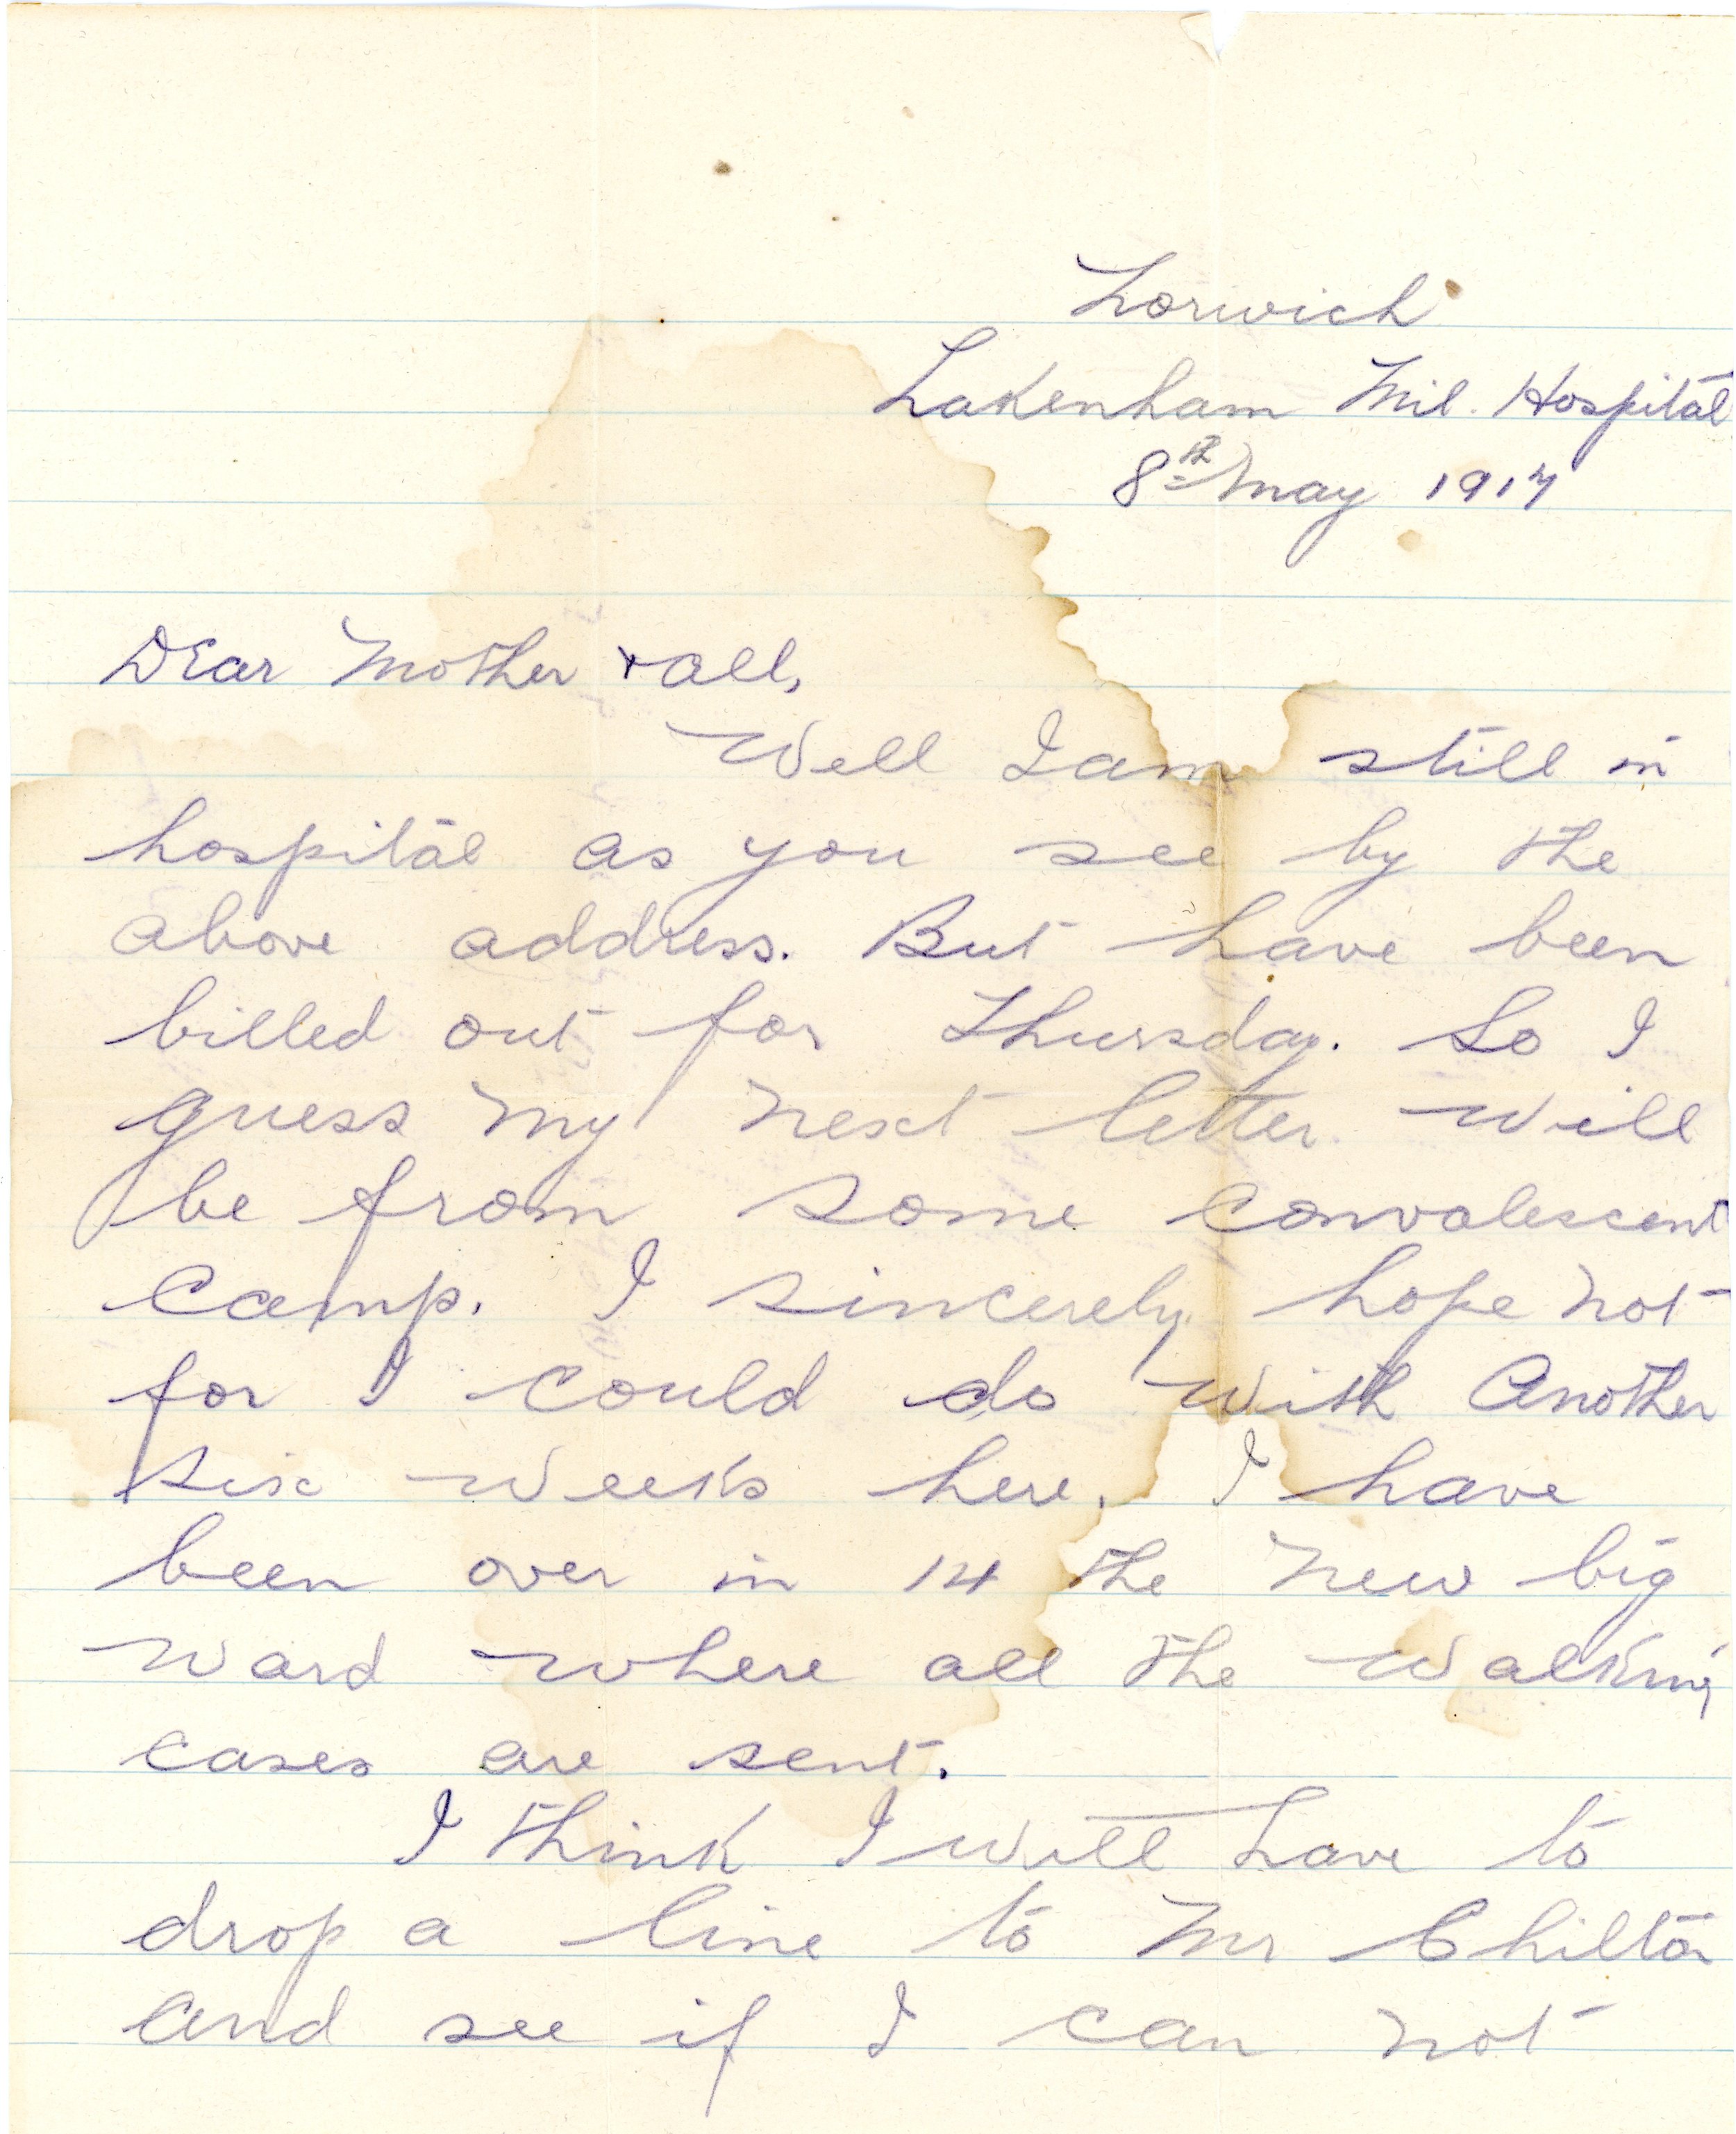 Norwich
Lakenham Mil. Hospital
8th May 1917
Dear Mother & all,
Well I am still in
hospital as you see by the
above address. But have been
billed out for Thursday. So I
guess my next letter will
be from some convalescent
camp. I sincerely hope not
for I could do with another
six weeks here. I have
been over in 14 the new big
ward where all the walking
cases are sent.
I think I will have to
drop a line to Mr Chilton
and see if I can not